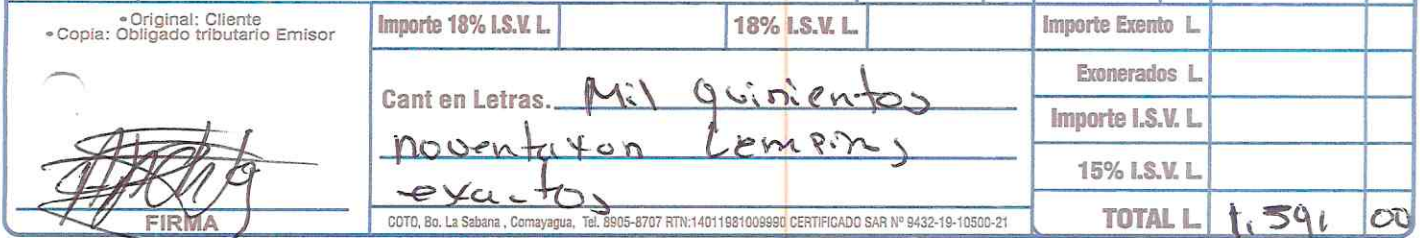 • Original: Cliente
• Copia: Obligado tributario Emisor
FIRMA
Importe 18% I.S.V. L.
18% I.S.V. L.
Cant en Letras. Mil quinientos
noventayon Lempiras
exactos
COTO, Bo. La Sabana , Comayagua, Tel. 8905-8707 RTN:14011981009990 CERTIFICADO SAR Nº 9432-19-10500-21
Importe Exento L.
Exonerados L.
Importe I.S.V. L.
15% I.S.V. L.
TOTAL L. 1,591 00